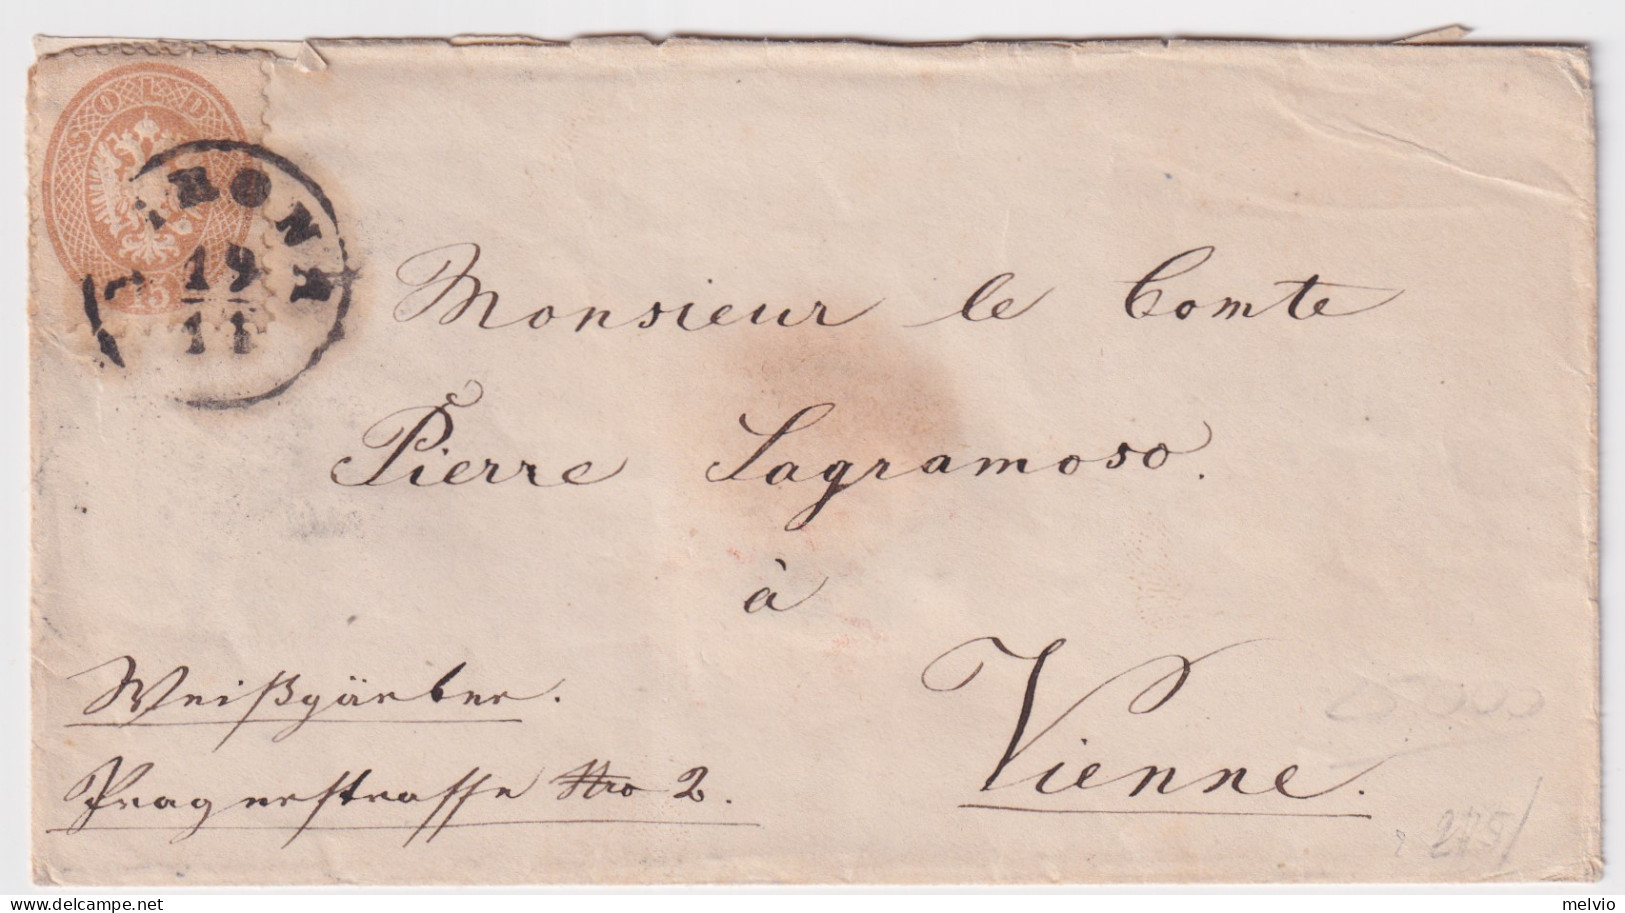 SOLD
15
19
11
Monsieur le Comte
Pierre Lagramoso.
à
Vienne.
Weißgärber.
Pragerstrasse Nro 2.
275
melvio